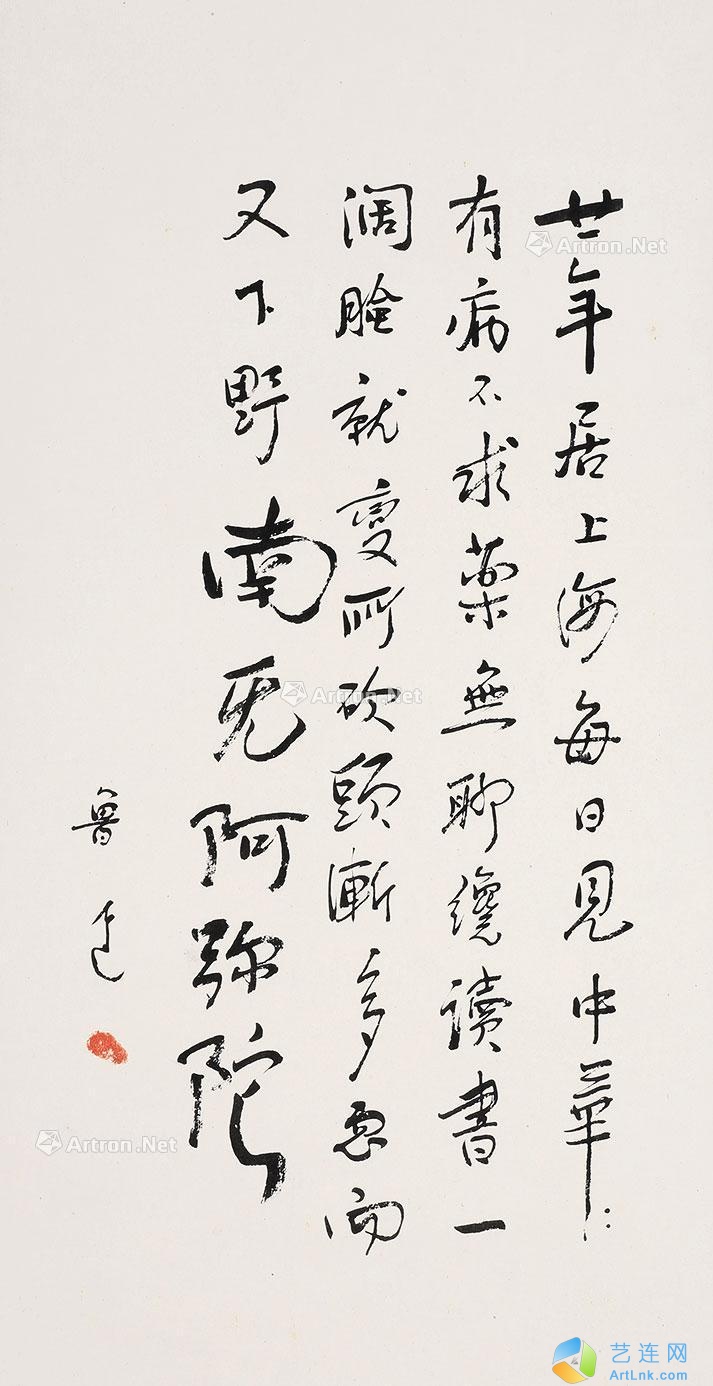 廿年居上海每日見中華
有病不求藥無聊纔讀書一
濶臉就變所砍頭漸多忽而
又下野南无阿弥陀
魯迅
Artron.Net
Artron.Net
Artron.Net
艺连网
ArtLnk.com